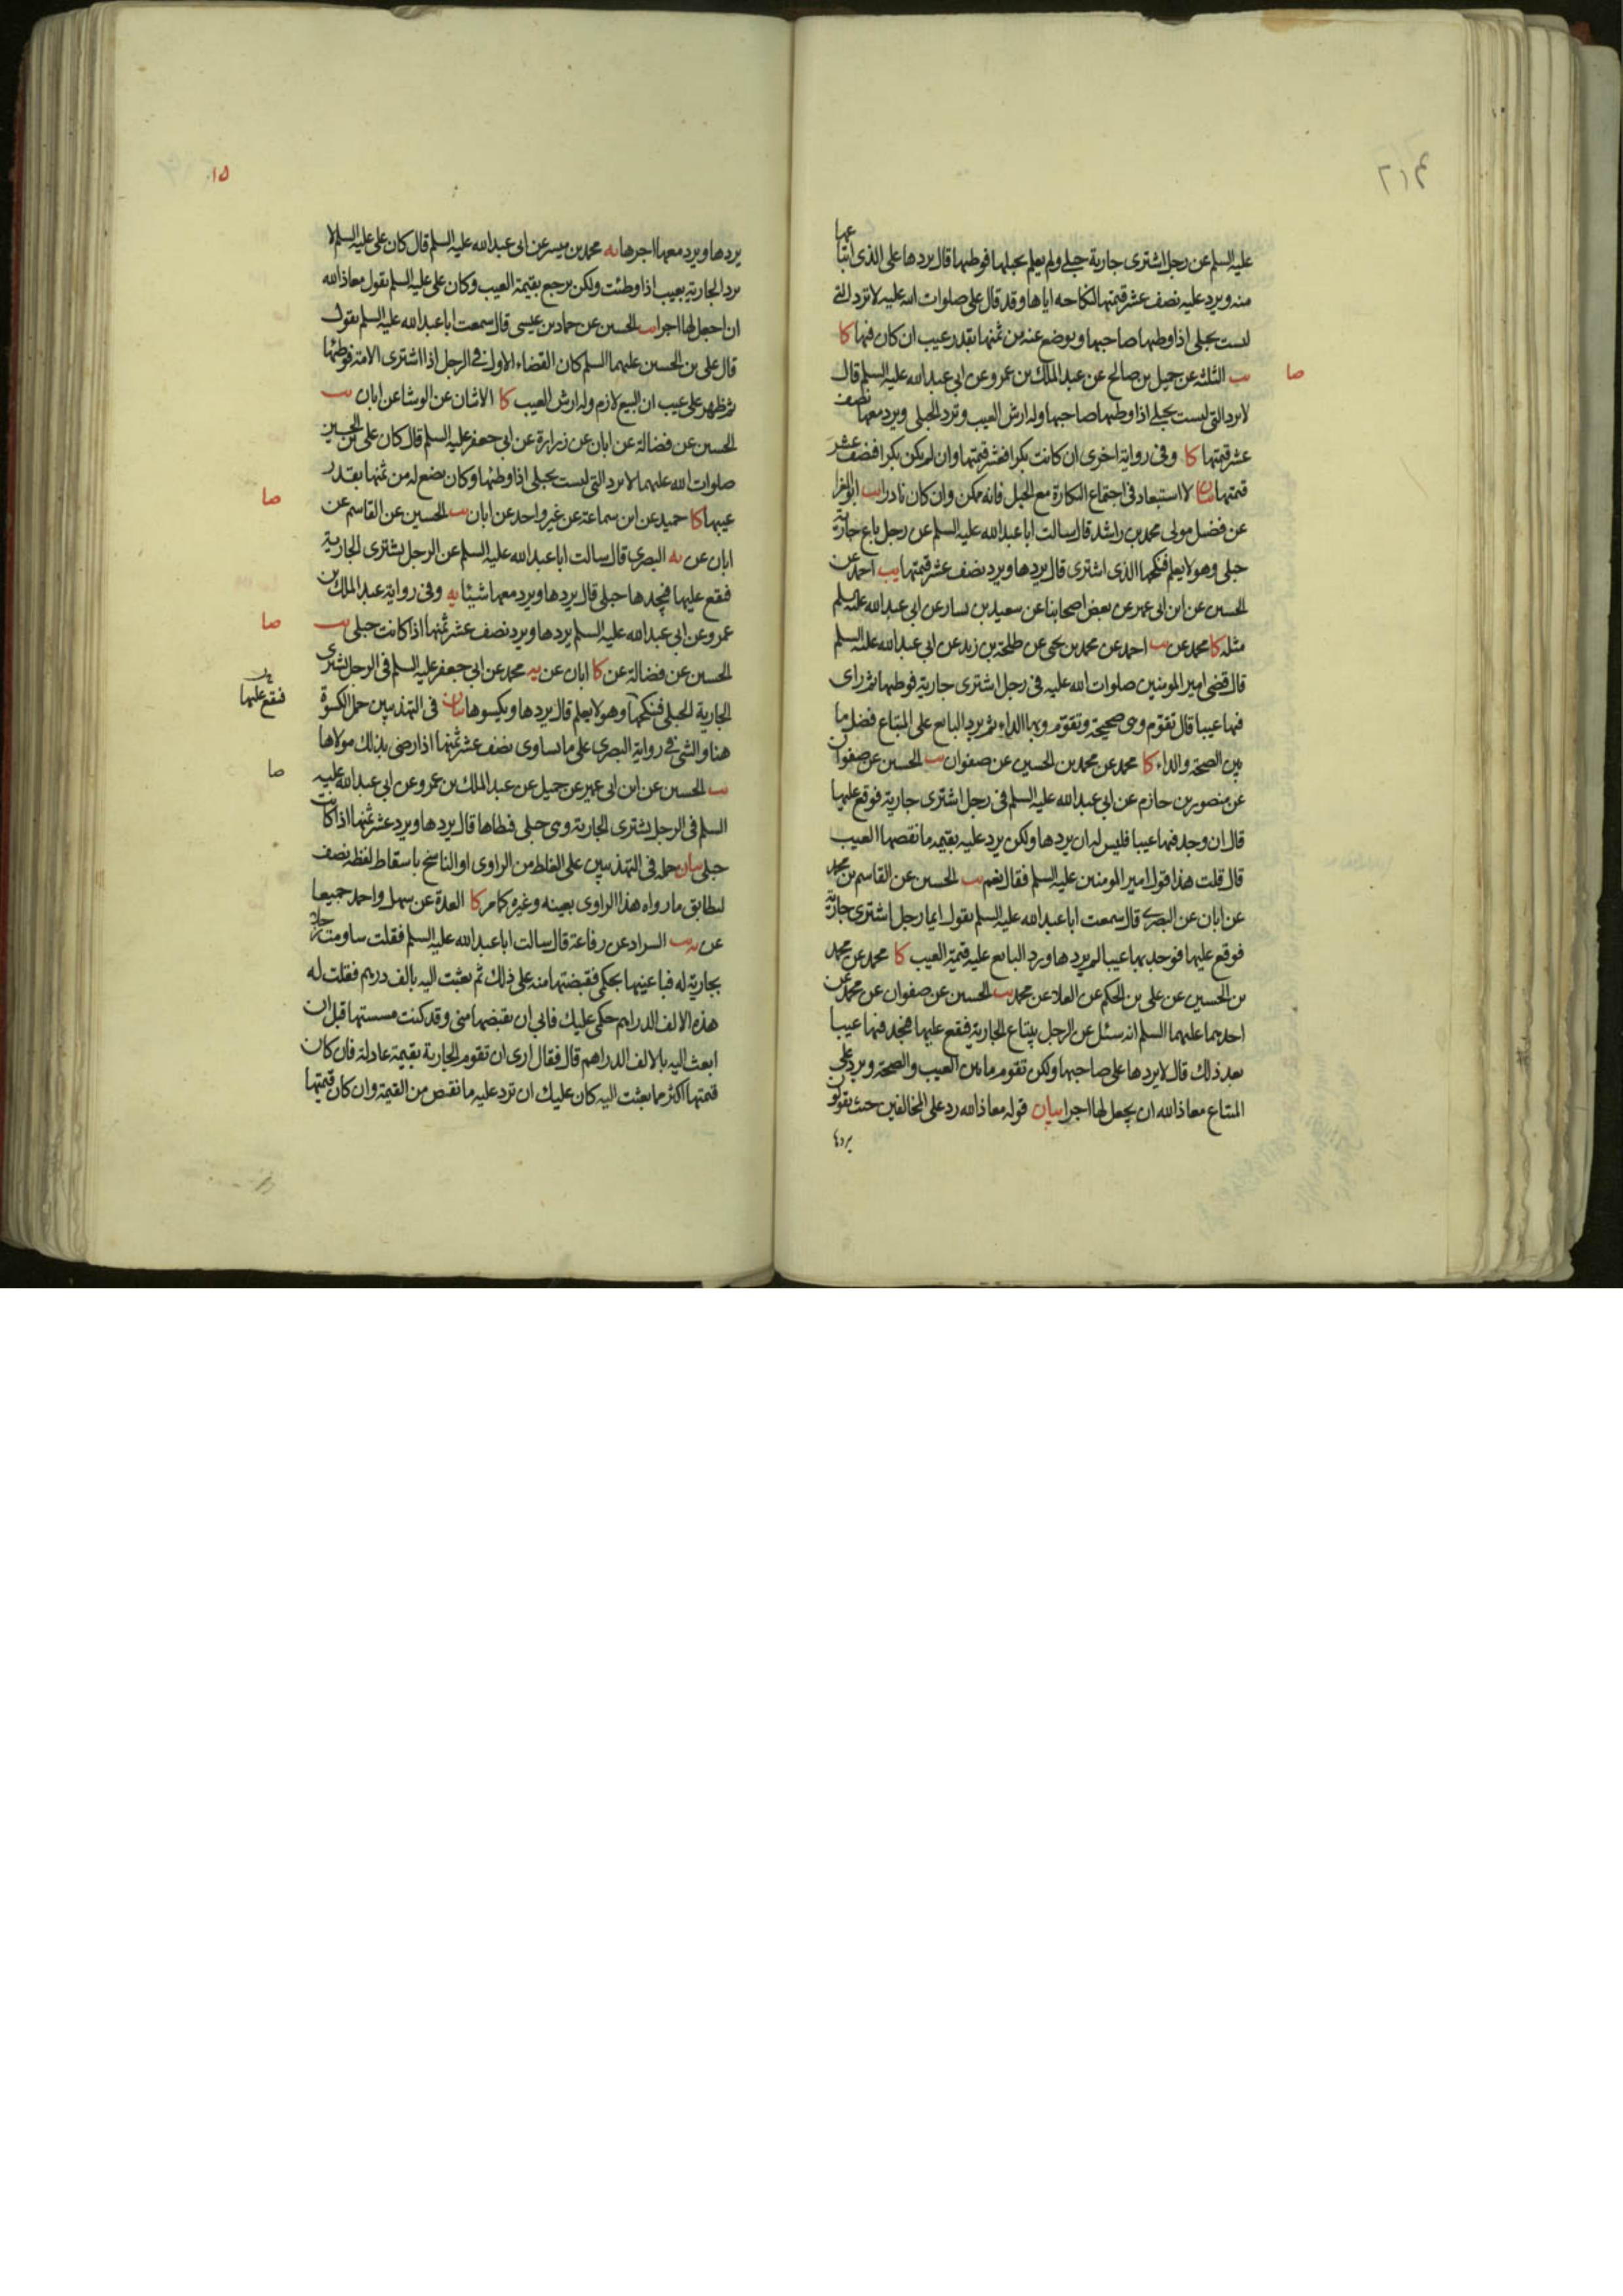 ٢١٤
عليه السلم عن رجل اشترى جارية حبلى ولم يعلم بحبلها فوطيها قال يردها على الذى ابتاعها
منه ويرد عليه نصف عشر قيمتها لنكاحه اياها وقد قال على صلوات الله عليه لا ترد التى
ليست بحبلى اذا وطيها صاحبها ويوضع عنه من ثمنها بقدر عيب ان كان فيها كا
صا
يب الثلثه عن جميل بن صالح عن عبد الملك بن عمرو عن ابى عبد الله عليه السلم قال
لا ترد التى ليست بحبلى اذا وطيها صاحبها وله ارش العيب وترد الحبلى ويرد معها نصف
عشر قيمتها كا وفى رواية اخرى ان كانت بكرا فعشر قيمتها وان لم يكن بكرا فنصف عشر
قيمتها بيان لا استبعاد فى اجتماع البكارة مع الحبل فانه ممكن وان كان نادرا يب ابو المغرا
عن فضيل مولى محمد بن راشد قال سالت ابا عبد الله عليه السلم عن رجل باع جارية
حبلى وهو لا يعلم فنكحها الذى اشترى قال يردها ويرد نصف عشر قيمتها يب احمد عن
الحسين عن ابن ابى عمير عن بعض اصحابنا عن سعيد بن يسار عن ابى عبد الله عليه السلم
مثله كا محمد عن يب احمد عن محمد بن يحيى عن طلحة بن زيد عن ابى عبد الله عليه السلم
قال قضى امير المومنين صلوات الله عليه فى رجل اشترى جارية فوطيها ثم راى
فيها عيبا قال تقوم وهى صحيحة وتقوم وبها الداء ثم يرد البايع على المبتاع فضل ما
بين الصحة والداء كا محمد عن محمد بن الحسين عن صفوان يب الحسين عن صفوان
عن منصور بن حازم عن ابى عبد الله عليه السلم فى رجل اشترى جارية فوقع عليها
قال ان وجد فيها عيبا فليس له ان يردها ولكن يرد عليه بقيمة ما نقصها العيب
قال قلت هذا قول امير المومنين عليه السلم فقال نعم يب الحسين عن القاسم بن محمد
عن ابان عن البصرى قال سمعت ابا عبد الله عليه السلم يقول ايما رجل اشترى جارية
فوقع عليها فوجد بها عيبا لم يردها ورد البايع عليه قيمة العيب كا محمد عن محمد
بن الحسين عن على بن الحكم عن العلا عن محمد يب الحسين عن صفوان عن محمد عن
احدهما عليهما السلم انه سئل عن الرجل يبتاع الجارية فيقع عليها فيجد فيها عيبا
بعد ذلك قال لا يردها على صاحبها ولكن تقوم ما بين العيب والصحة ويرد على
المبتاع معاذ الله ان يجعل لها اجرا بيان قوله معاذ الله رد على المخالفين حيث يقولون
يردها
١٥
يردها ويرد معها اجرها يه محمد بن ميسر عن ابى عبد الله عليه السلم قال كان على عليه السلم لا
يرد الجارية بعيب اذا وطئت ولكن يرجع بقيمة العيب وكان على عليه السلم يقول معاذ الله
ان اجعل لها اجرا يب الحسين عن حماد بن عيسى قال سمعت ابا عبد الله عليه السلم يقول
قال على بن الحسين عليهما السلم كان القضاء الاول فى الرجل اذا اشترى الامة فوطئها
ثم ظهر على عيب ان البيع لازم وله ارش العيب كا الاثنان عن الوشا عن ابان يب
الحسين عن فضالة عن ابان عن زرارة عن ابى جعفر عليه السلم قال كان على بن الحسين
صلوات الله عليهما لا يرد التى ليست بحبلى اذا وطئها وكان يضع له من ثمنها بقدر
صا
عيبها كا حميد عن ابن سماعة عن غير واحد عن ابان يب الحسين عن القاسم عن
ابان عن يه البصرى قال سالت ابا عبد الله عليه السلم عن الرجل يشترى الجارية
فيقع عليها فيجدها حبلى قال يردها ويرد معها شيئا يه وفى رواية عبد الملك بن
صا
عمرو عن ابى عبد الله عليه السلم يردها ويرد نصف عشر ثمنها اذا كانت حبلى يب
الحسين عن فضالة عن كا ابان عن يه محمد عن ابى جعفر عليه السلم فى الرجل يشترى
فيقع عليها
الجارية الحبلى فينكحها وهو لا يعلم قال يردها ويكسوها بيان فى التهذيبين حمل الكسوة
هنا والشى فى رواية البصرى على ما يساوى نصف عشر ثمنها اذا رضى بذلك مولاها
صا
يب الحسين عن ابن ابى عمير عن جميل عن عبد الملك بن عمرو عن ابى عبد الله عليه
السلم فى الرجل يشترى الجارية وهى حبلى فيطاها قال يردها ويرد عشر ثمنها اذا كانت
حبلى بيان حمله فى التهذيبين على الغلط من الراوى او الناسخ باسقاط لفظة نصف
ليطابق ما رواه هذا الراوى بعينه وغيره كما مر كا العدة عن سهل واحمد جميعا
عن يب السراد عن رفاعة قال سالت ابا عبد الله عليه السلم فقلت ساومت رجلا
بجارية له فباعنيها بحكمى فقبضتها منه على ذلك ثم بعثت اليه بالف درهم فقلت له
هذه الالف الدراهم حكمى عليك فابى ان يقبضها منى وقد كنت مسستها قبل ان
ابعث اليه بالالف الدراهم قال فقال ارى ان تقوم الجارية بقيمة عادلة فان كان
قيمتها اكثر مما بعثت اليه كان عليك ان ترد عليه ما نقص من القيمة وان كان قيمتها